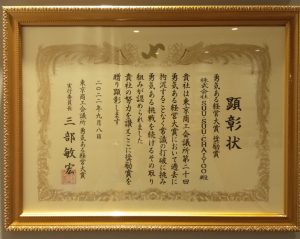 顕彰状
勇気ある経営大賞 奨励賞
株式会社 SOU SOU CHAIYOO殿
貴社は東京商工会議所第二十回
勇気ある経営大賞において過去に
拘泥することなく常識の打破に挑み
勇気ある挑戦を続けるその取り
組みが認められました
貴社の努力を讃えここに奨励賞を
贈り顕彰します
二〇二二年九月八日
東京商工会議所 勇気ある経営大賞
実行委員長 三部敏宏